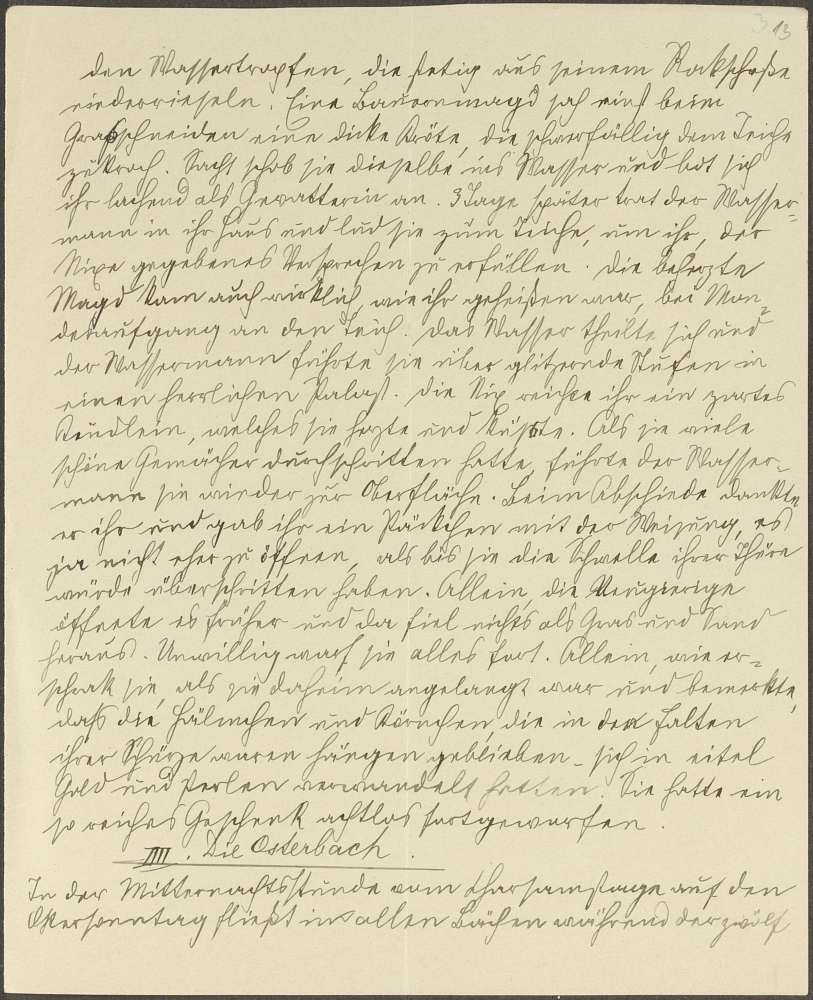 3 13
den Wassertropfen, die stetig aus seinem Rockschoße
niederrieseln. Eine Bauernmagd sah einst beim
Grasschneiden eine dicke Kröte, die schwerfällig dem Teiche
zukroch. Sacht schob sie dieselbe ins Wasser und bot sich
ihr lachend als Gevatterin an. 3 Tage später trat der Wasser=
mann in ihr Haus und lud sie zum Teiche, um ihr, der
Nixe gegebenes Versprechen zu erfüllen. Die beherzte
Magd kam auch wirklich, wie ihr geheißen war, bei Mon=
desaufgang an den Teich. Das Wasser theilte sich und
der Wassermann führte sie über glitzernde Stufen in
einen herrlichen Palast. Die Nix reichte ihr ein zartes
Kindlein, welches sie herzte und küßte. Als sie viele
schöne Gemächer durchschritten hatte, führte der Wasser=
mann sie wieder zur Oberfläche. Beim Abschiede dankte
er ihr und gab ihr ein Päckchen mit der Weisung, es
ja nicht eher zu öffnen, als bis sie die Schwelle ihrer Thüre
würde überschritten haben. Allein, die Neugierige
öffnete es früher und da fiel nichts als Gras und Sand
heraus. Unwillig warf sie alles fort. Allein, wie er=
schrak sie, als sie daheim angelangt war und bemerkte,
dass die Hälmchen und Körnchen, die in den Falten
ihrer Schürze waren hängen geblieben – sich in eitel
Gold und Perlen verwandelt hatten. Sie hatte ein
so reiches Geschenk achtlos fortgeworfen.
IIII. Die Osterbach.
In der Mitternachtsstunde vom Charsamstage auf den
Ostersonntag fließt in allen Bächen während der zwölf